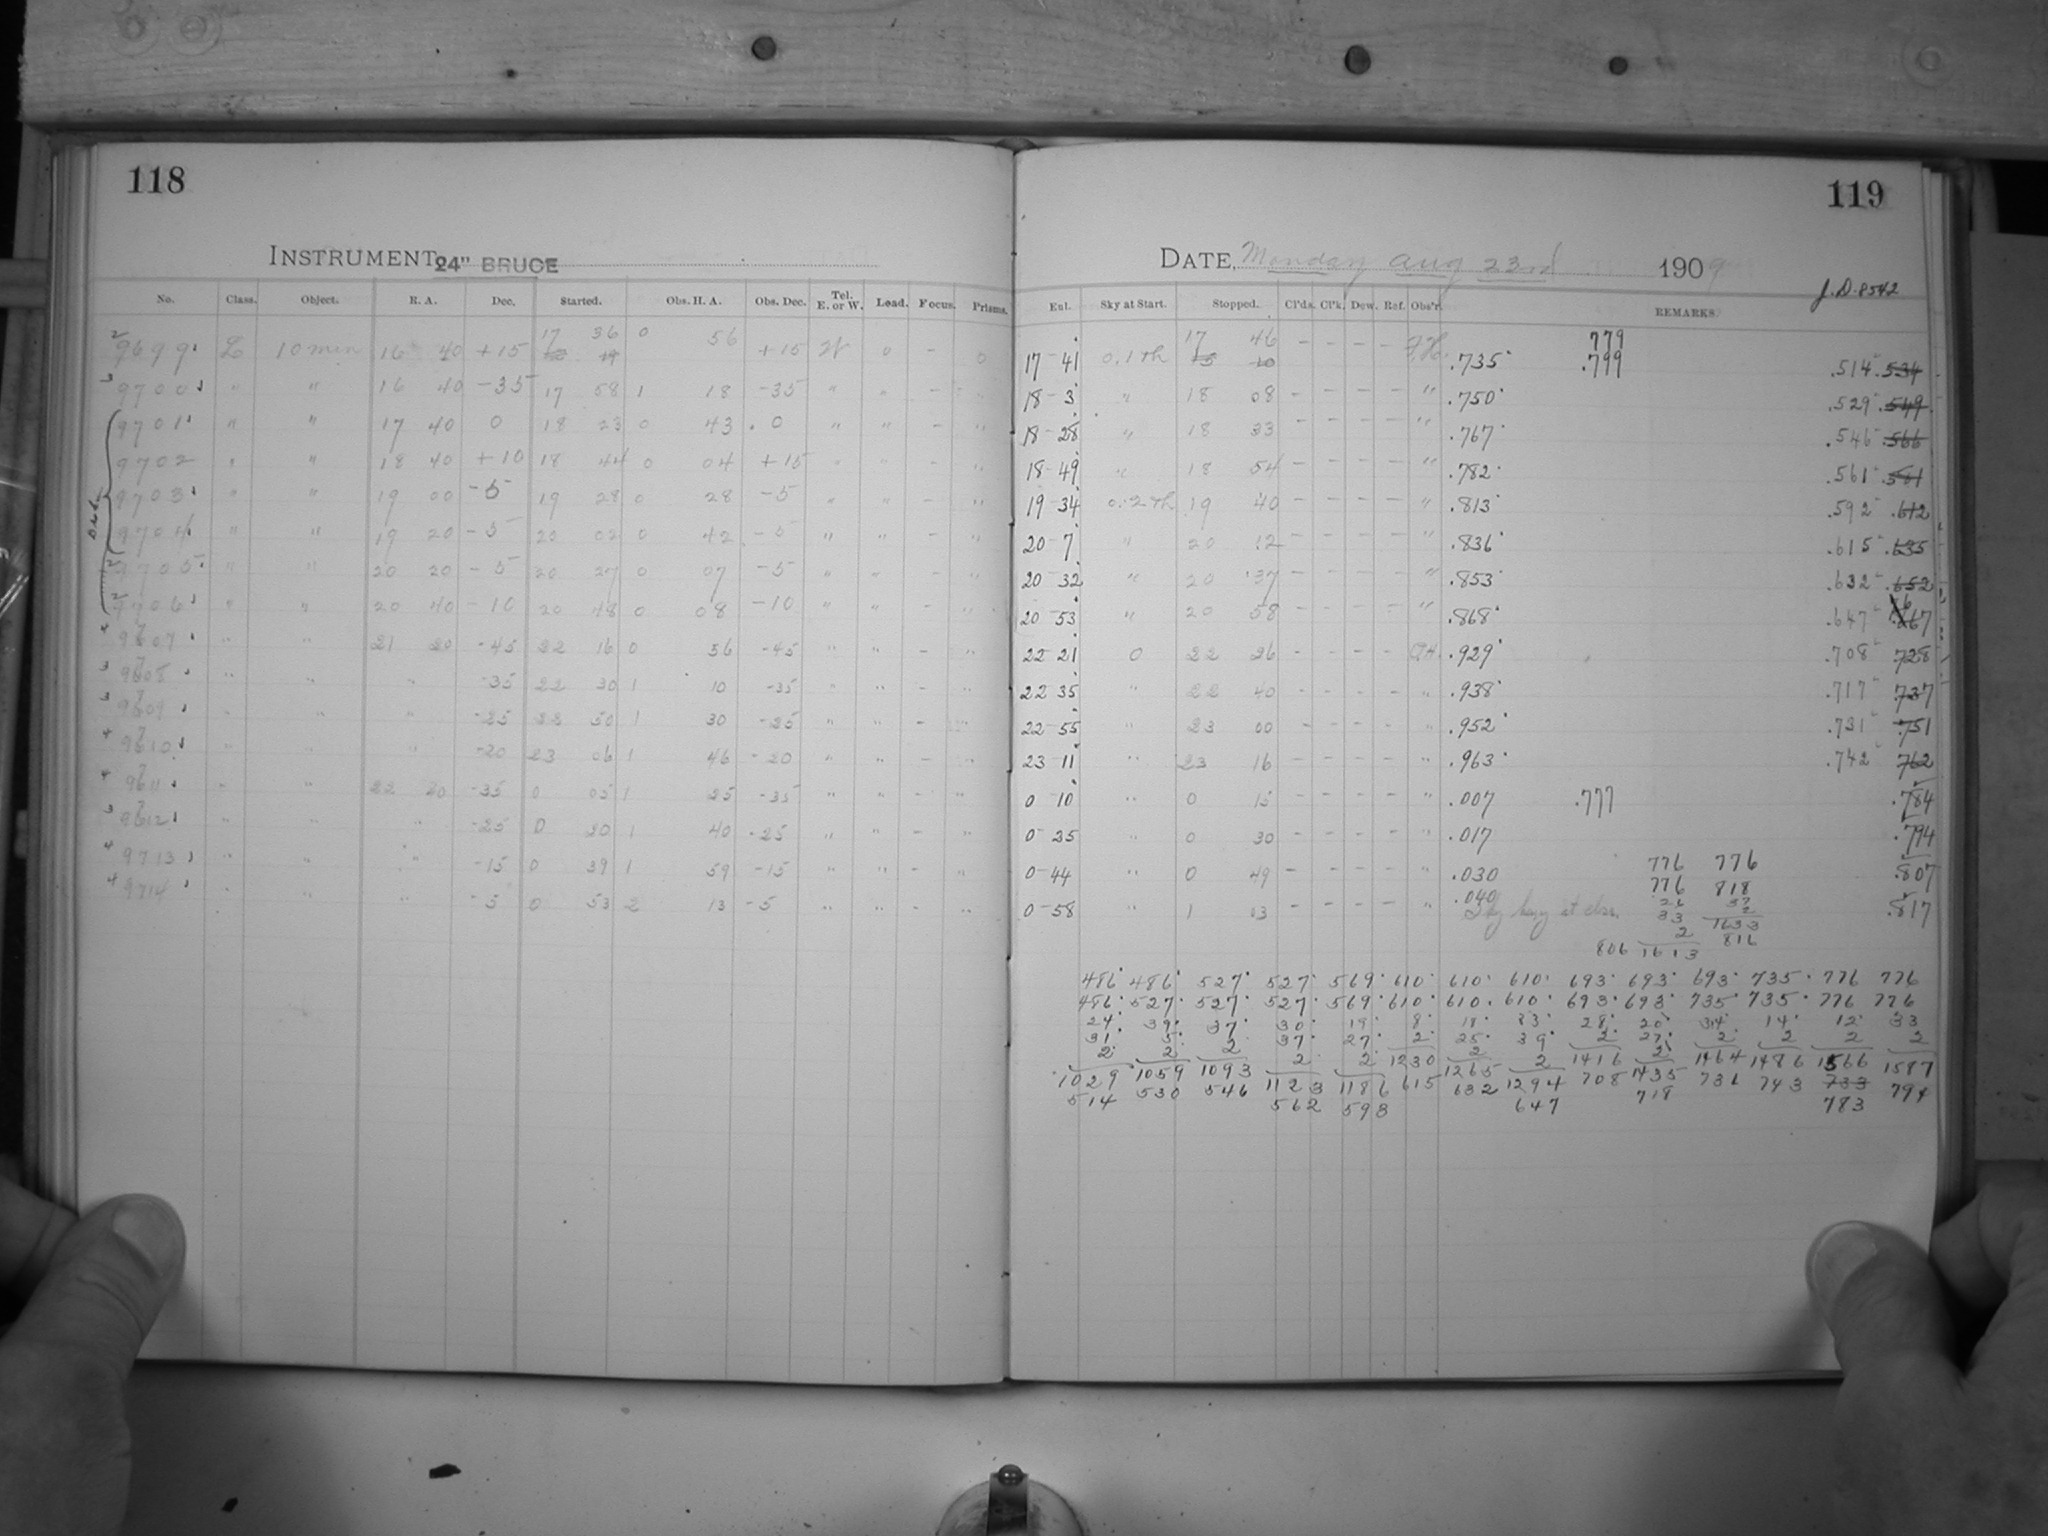 118
INSTRUMENT 24" BRUCE
No. Class. Object. R. A. Dec. Started. Obs. H. A. Obs. Dec. Tel. E. or W. Lead. Focus. Prisms.
9699 L 10 min 16 40 +15 17 36 0 56 +15 W 0 - 0
9700 " " 16 40 -35 17 58 1 18 -35 " " - "
9701 " " 17 40 0 18 23 0 43 0 " " - "
9702 " " 18 40 +10 18 44 0 04 +15 " " - "
9703 " " 19 00 -5 19 28 0 28 -5 " " - "
9704 " " 19 20 -5 20 02 0 42 -5 " " - "
9705 " " 20 20 -5 20 27 0 07 -5 " " - "
9706 " " 20 40 -10 20 48 0 08 -10 " " - "
9607 " " 21 20 -45 22 16 0 56 -45 " " - "
9608 " " " -35 22 30 1 10 -35 " " - "
9609 " " " -25 22 50 1 30 -25 " " - "
9610 " " " -20 23 06 1 46 -20 " " - "
9611 " " 22 20 -35 0 05 1 25 -35 " " - "
9612 " " " -25 0 20 1 40 -25 " " - "
9713 " " " -15 0 39 1 59 -15 " " - "
9714 " " " -5 0 53 2 13 -5 " " - "
119
DATE, Monday Aug 23rd 1909
J.D. 8542
Enl. Sky at Start. Stopped. Cl'ds. Cl'k. Dew. Ref. Obs'r. REMARKS.
779
17-41 0.1 th 17 46 - - - - F.H. .735 .799 .514 .534
18-3 " 18 08 - - - - " .750 .529 .549
18-28 " 18 33 - - - - " .767 .546 .566
18-49 " 18 54 - - - - " .782 .561 .581
19-34 0.2 th 19 40 - - - - " .813 .592 .612
20-7 " 20 12 - - - - " .836 .615 .635
20-32 " 20 37 - - - - " .853 .632 .652
20-53 " 20 58 - - - - " .868 .647 .667
22-21 0 22 26 - - - - .929 .708 .728
22 35 " 22 40 - - - - " .938 .717 737
22-55 " 23 00 - - - - " .952 .731 751
23 11 " 23 16 - - - - " .963 .742 762
0-10 " 0 15 - - - - " .007 .777 .784
0-25 " 0 30 - - - - " .017 .794
0-44 " 0 49 - - - - " .030 776 776 .807
0-58 " 1 03 - - - - " .040 776 818 .817
Sky hazy at close. 26 37
33 2
2 1633
806 1613 816
486 486 527 527 569 610 610 610 693 693 693 735 776 776
486 527 527 527 569 610 610 610 693 693 735 735 776 776
24 39 37 30 19 8 18 33 28 20 34 14 12 33
31 5 2 37 27 2 25 39 2 27 2 2 2 2
2 2 2 2 2 2 2
1029 1059 1093 1123 1186 1230 1265 1294 1416 1435 1464 1486 1566 1587
514 530 546 562 593 615 632 647 708 718 731 743 733 794
783